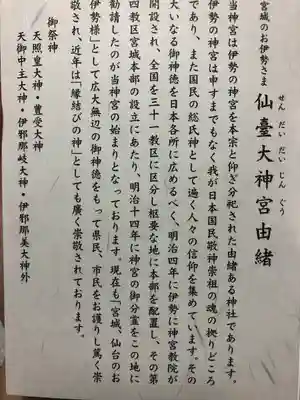 宮城のお伊勢さま
せんだいだいじんぐう
仙臺大神宮由緒
当神宮は伊勢の神宮を本宗と仰ぎ分祀された由緒ある神社であります。
伊勢の神宮は申すまでもなく我が日本国民敬神崇祖の魂の拠りどころ
であり、また国民の総氏神として遍く人々の信仰を集めています。その
大いなる御神徳を日本各所に広めるべく、明治四年に伊勢に神宮教院が
開設され、全国を三十一教区に区分し枢要な地に本部を配置し、その第
四教区宮城本部の設立にあたり、明治十四年に神宮の御分霊をこの地に
勧請したのが当神宮の始まりとなっております。現在も「宮城、仙台のお
伊勢様」として広大無辺の御神徳をもって県民、市民をお護りし篤く崇
敬され、近年は「縁結びの神」としても廣く崇敬されております。
御祭神
天照皇大神・豊受大神
天御中主大神・伊邪那岐大神・伊邪那美大神外